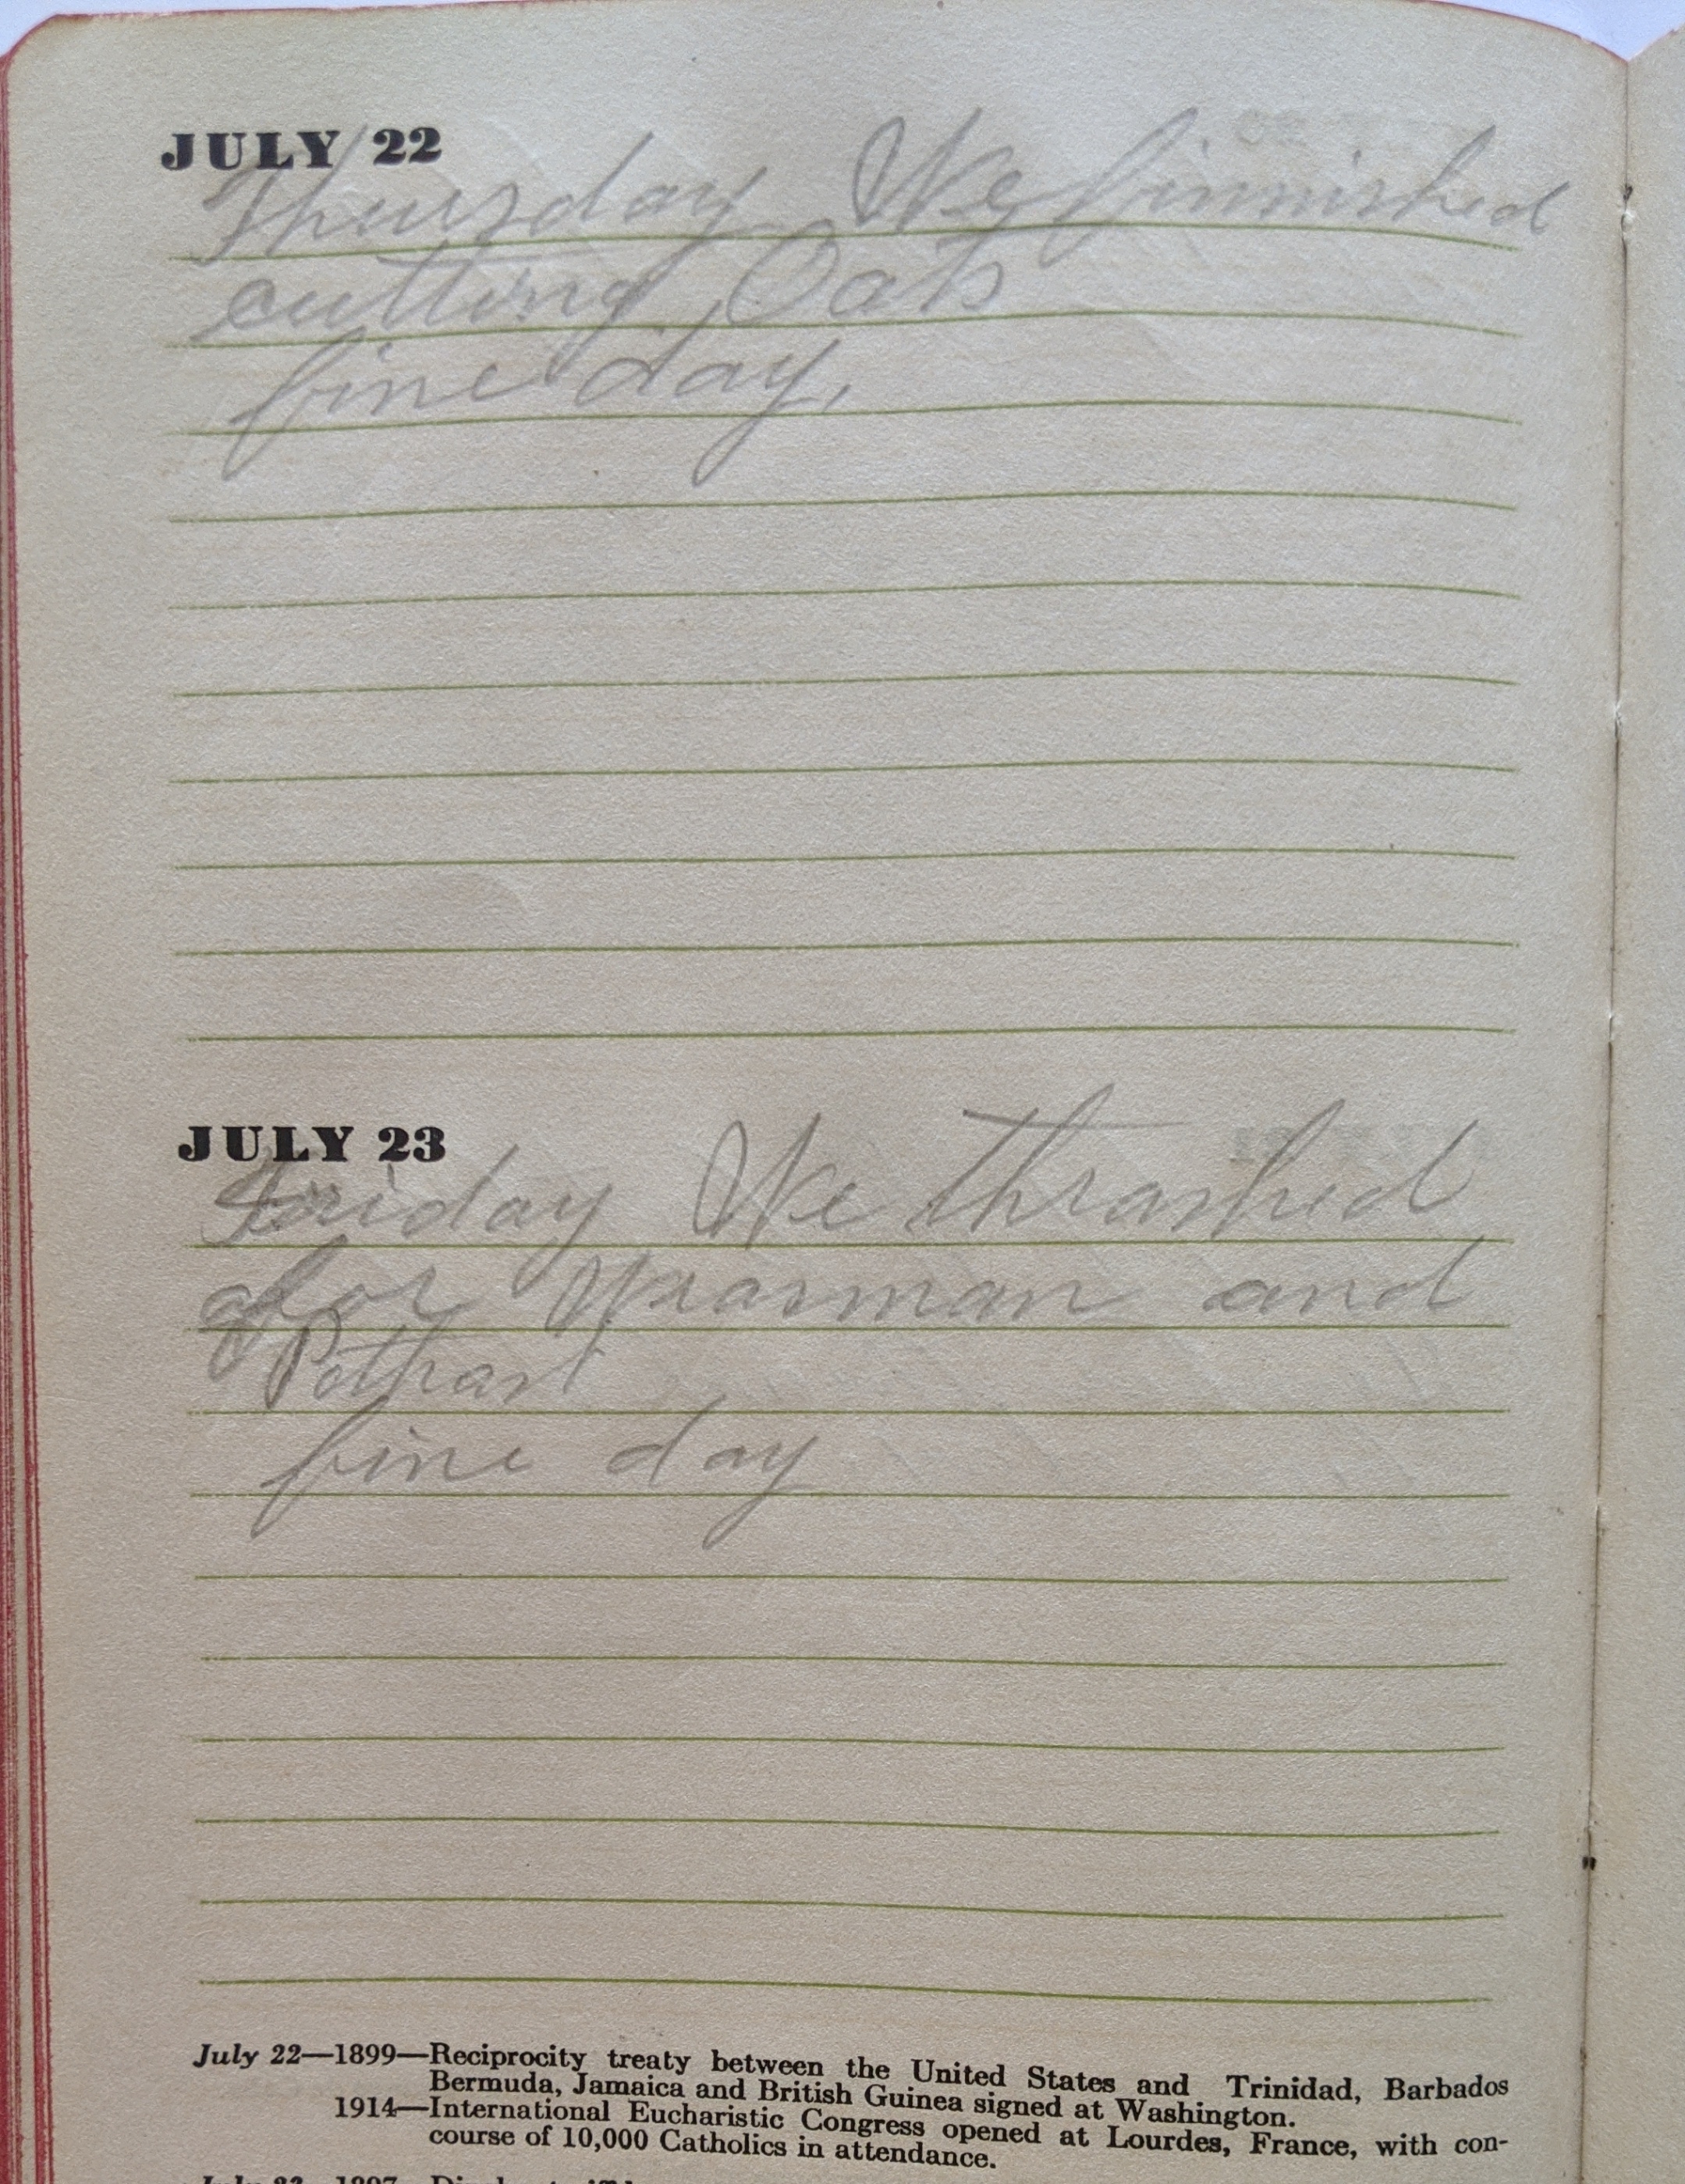 JULY 22
Thursday We finnished
cutting Oats
fine day,
JULY 23
Friday We thrashed
for and
Pothast
fine day
July 22—1899—Reciprocity treaty between the United States and Trinidad, Barbados
Bermuda, Jamaica and British Guinea signed at Washington.
1914—International Eucharistic Congress opened at Lourdes, France, with con-
course of 10,000 Catholics in attendance.